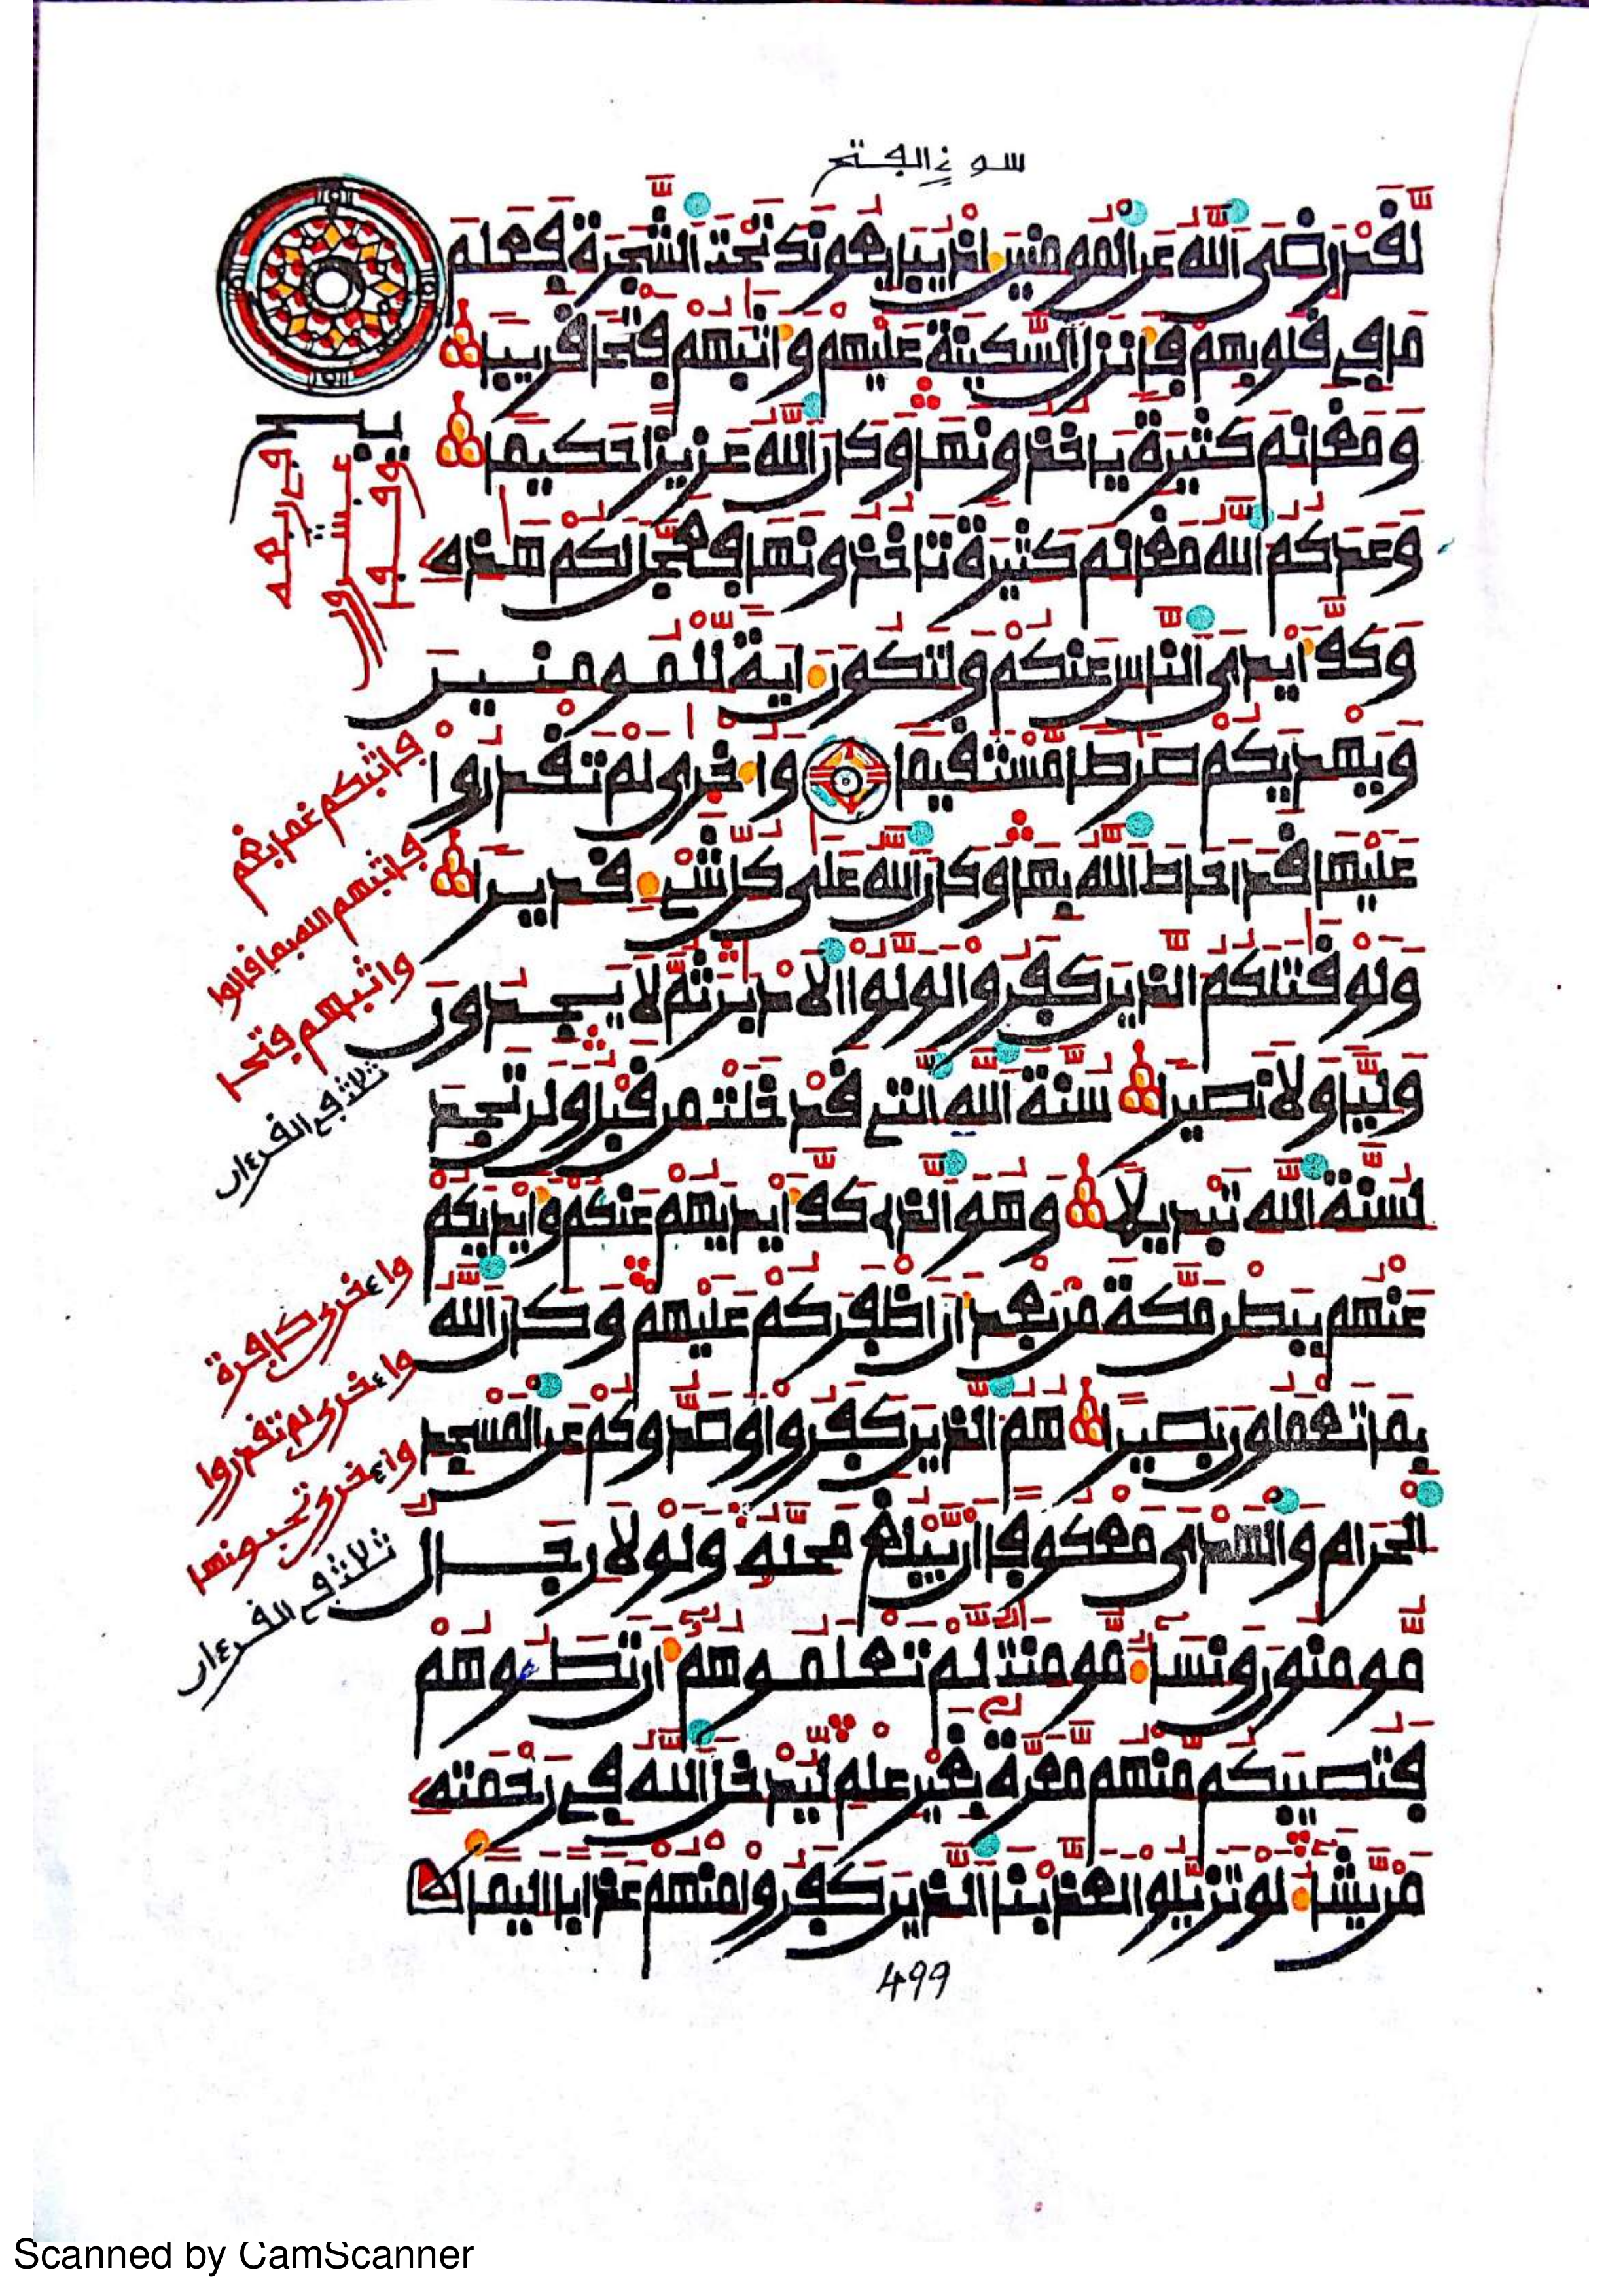 سورة الفتح
لقد رضي الله عن المومنين إذ يبايعونك تحت الشجرة فعلم
ما في قلوبهم فأنزل السكينة عليهم وأثبهم فتحا قريبا
ومغانم كثيرة ياخذونها وكان الله عزيزا حكيما
وعدكم الله مغانم كثيرة تاخذونها فعجل لكم هذه
وكف أيدي الناس عنكم ولتكون ءاية للمومنين
ويهديكم صرطا مستقيما وأخرى لم تقدروا
عليها قد أحاط الله بها وكان الله على كل شيء قديرا
ولو قتلكم الذين كفروا لولوا الادبر ثم لا يجدون
وليا ولا نصيرا سنة الله التي قد خلت من قبل ولن تجد
لسنة الله تبديلا وهو الذي كف أيديهم عنكم وأيديكم
عنهم ببطن مكة من بعد أن أظفركم عليهم وكان الله
بما تعملون بصيرا هم الذين كفروا وصدوكم عن المسجد
الحرام والهدي معكوفا أن يبلغ محله ولولا رجال
مومنون ونساء مومنت لم تعلموهم أن تطـوهم
فتصيبكم منهم معرة بغير علم ليدخل الله في رحمته
من يشاء لو تزيلوا لعذبنا الذين كفروا منهم عذابا اليما
فأثبكم غما بغم
فأثبهم الله بما قالوا
وأثبهم فتحا
ثلاث في القرءان
وأخرى كافرة
وأخرى لم تقدروا
وأخرى تحبونها
ثلاث في القرءان
499
Scanned by CamScanner